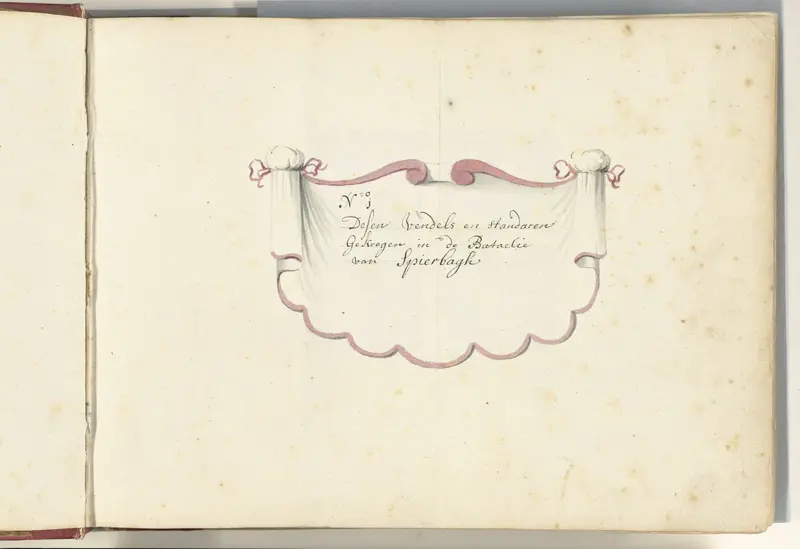 No 1
Desen Vendels en standaren
Gekregen in de Bataelie
van Spierbagh